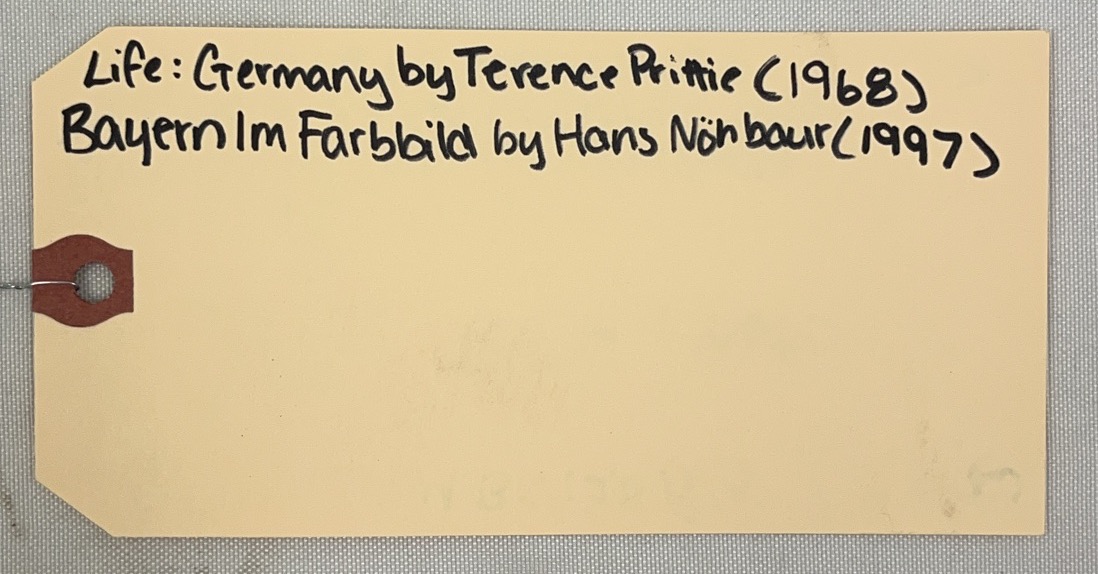 Life: Germany by Terence Prittie (1968)
Bayern Im Farbbild by Hans Nöhbaur (1997)